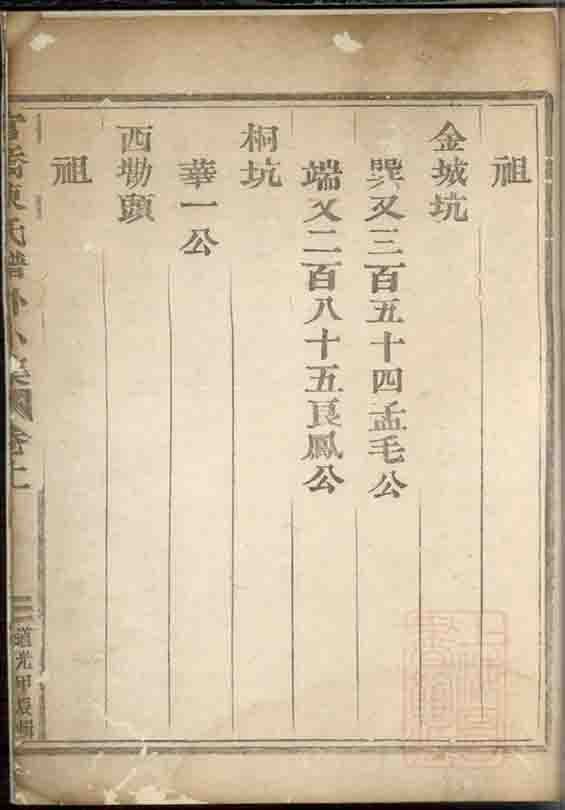 祖
金城坑
巽又三百五十四孟毛公
端又二百八十五良鳳公
桐坑
華一公
西塘頭
祖
氏譜
道光甲辰輯